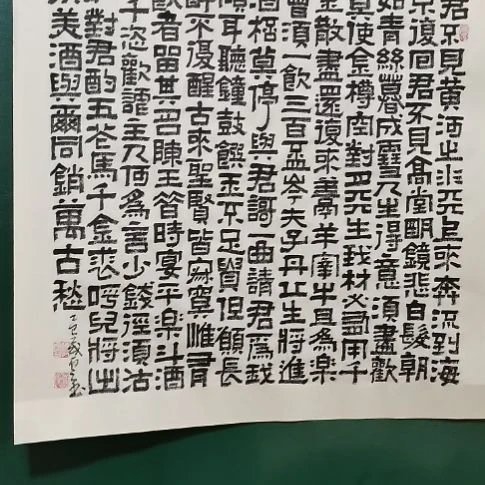 君不見黃河之水天上來奔流到海
不復回君不見高堂明鏡悲白髮朝
如青絲暮成雪人生得意須盡歡
莫使金樽空對月天生我材必有用千
金散盡還復來烹羊宰牛且為樂
會須一飲三百盃岑夫子丹丘生將進
酒桮莫停與君歌一曲請君為我
傾耳聽鐘鼓饌玉不足貴但願長
醉不復醒古來聖賢皆寂寞惟有
飲者留其名陳王昔時宴平樂斗酒
千恣歡謔主人何為言少錢徑須沽
對君酌五花馬千金裘呼兒將出
美酒與爾同銷萬古愁